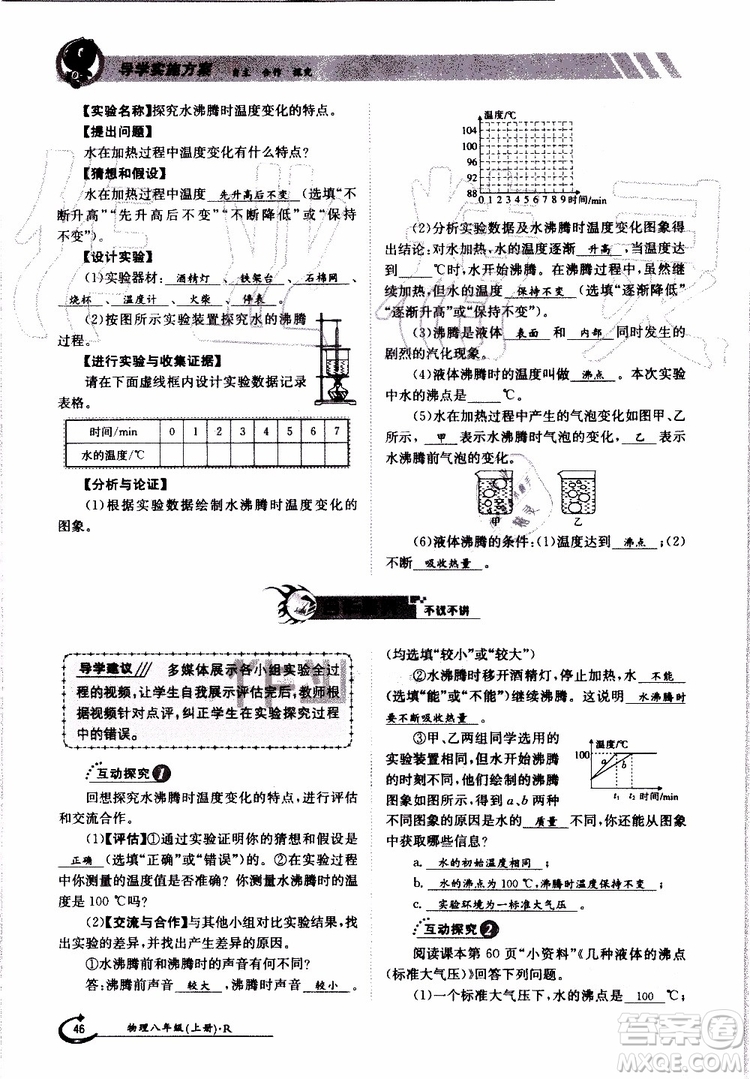 导学实施方案 自主 合作 探究
【实验名称】探究水沸腾时温度变化的特点。
【提出问题】
水在加热过程中温度变化有什么特点?
【猜想和假设】
水在加热过程中温度 先升高后不变 (选填“不
断升高”“先升高后不变”“不断降低”或“保持
不变”)。
【设计实验】
(1)实验器材: 酒精灯 、 铁架台 、 石棉网 、
烧杯 、 温度计 、 火柴 、 停表 。
(2)按图所示实验装置探究水的沸腾
过程。
【进行实验与收集证据】
请在下面虚线框内设计实验数据记录
表格。
时间/min 0 1 2 3 4 5 6 7
水的温度/℃
【分析与论证】
(1)根据实验数据绘制水沸腾时温度变化的
图象。
温度/℃
104
100
96
92
88
0 1 2 3 4 5 6 7 8 9 时间/min
(2)分析实验数据及水沸腾时温度变化图象可
得出结论:对水加热,水的温度逐渐 升高 ,当温度达
到 ℃时,水开始沸腾。在沸腾过程中,虽然
继续加热,但水的温度 保持不变 (选填“逐渐降低”
“逐渐升高”或“保持不变”)。
(3)沸腾是液体 表面 和 内部 同时发生的
剧烈的汽化现象。
(4)液体沸腾时的温度叫做 沸点 。本次实验
中水的沸点是 ℃。
(5)水在加热过程中产生的气泡变化如图甲、乙
所示, 甲 表示水沸腾时气泡的变化, 乙 表示
水沸腾前气泡的变化。
甲 乙
(6)液体沸腾的条件:(1)温度达到 沸点 ;(2)
不断 吸收热量 。
不议不讲
导学建议 多媒体展示各小组实验全过
程的视频,让学生自我展示评估完后,教师根
据视频针对点评,纠正学生在实验探究过程
中的错误。
互动探究1
回想探究水沸腾时温度变化的特点,进行评估
和交流合作。
(1)【评估】①通过实验证明你的猜想和假设是
正确 (选填“正确”或“错误”)的。②在实验过程
中你测量的温度值是怎样变化的?你测量的沸点
是100 ℃吗?
(2)【交流与合作】与其他小组对比实验结果,找
出实验的差异,并交流产生差异的原因。
①水沸腾前和沸腾时的声音有何不同?
答:沸腾前声音 较大 ,沸腾时声音 较小 。
(均选填“较小”或“较大”)
②水沸腾时移开酒精灯,停止加热,水 不能
(选填“能”或“不能”)继续沸腾。这说明 水沸腾时
要不断吸收热量 。
③甲、乙两组同学选用的
实验装置相同,但水沸腾
的时刻不同,他们绘制的沸腾
图象如图所示,得到a、b两种
不同图象的原因是水的 质量 不同,你能从图象
中获取哪些信息?
温度/℃
100
a b
t₁ t₂ 时间/min
a. 水的初始温度相同 ;
b. 水的沸点为100 ℃,沸腾时温度保持不变 ;
c. 实验环境为一标准大气压 。
互动探究2
阅读课本第60页“小资料”《几种液体的沸点
(标准大气压)》回答下列问题。
(1)一个标准大气压下,水的沸点是 100 ℃;
46 物理八年级(上册)·R
答案圈
MXQE.COM